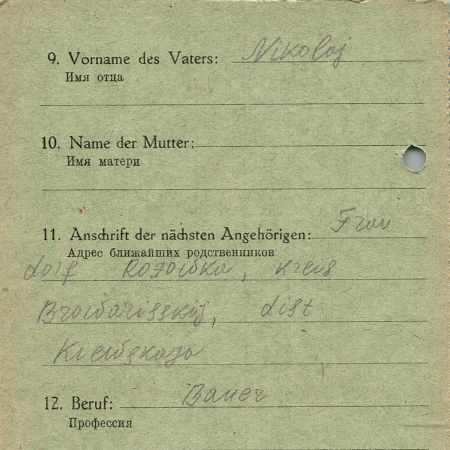 9. Vorname des Vaters: Nikolaj
Имя отца
10. Name der Mutter:
Имя матери
11. Anschrift der nächsten Angehörigen: Frau
Адрес ближайших родственников
dorf Rozowka, kreis
Browarisskij, dist
Kiewskaja
12. Beruf: Bauer
Профессия